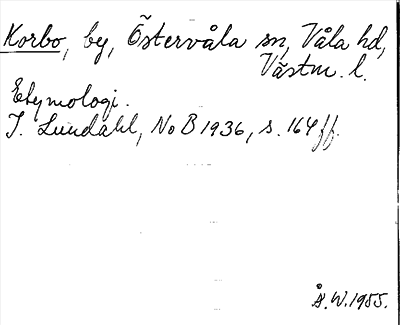 Korbo, by, Östervåla sn, Våla hd,
Västm. l.
Etymologi.
I. Lundahl, NoB 1936, s. 164 ff.
Å. W. 1955.